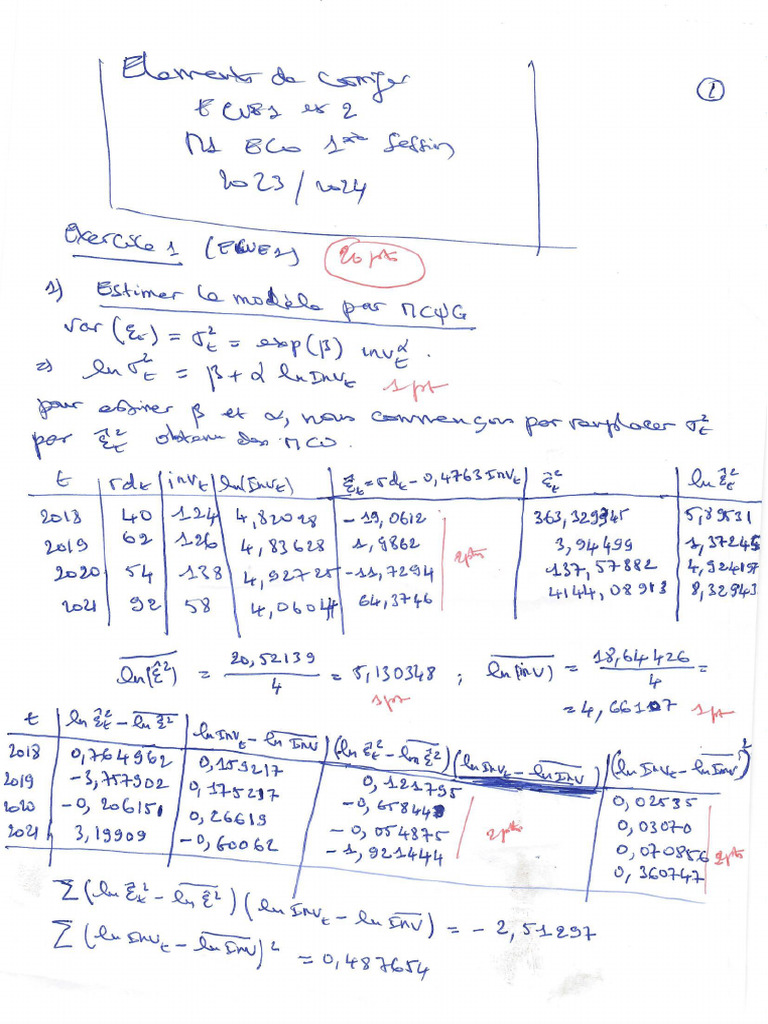 Elements de corriger
ECUE1 et 2
M1 ECO 1ère Session
2023/2024
1
Exercice 1 (ECUE1) 20 pts
1) Estimer le modèle par MCQG
var(ε_t) = σ_t² = exp(β) inv_t^α.
=> ln σ_t² = β + α ln Inv_t 1 pt
pour estimer β et α, nous commençons par remplacer σ_t²
par ε̂_t² obtenu des MCO.
t | rd_t | inv_t | ln(Inv_t) | ε̂_t = rd_t - 0,4763 Inv_t | ε̂_t² | ln ε̂_t²
2018 | 40 | 124 | 4,82028 | -19,0612 | 363,329345 | 5,89531
2019 | 62 | 126 | 4,83628 | 1,9862 | 3,94499 | 1,37245
2020 | 54 | 138 | 4,92725 | -11,7294 | 137,57882 | 4,924197
2021 | 92 | 58 | 4,06044 | 64,3746 | 4144,08913 | 8,32943
2pts
ln(ε̂²) = 20,52139 / 4 = 5,130348 ; ln(inv) = 18,64426 / 4 =
1pt = 4,66107 1pt
t | ln ε̂_t² - ln ε̂² | ln Inv_t - ln Inv | (ln ε̂_t² - ln ε̂²)(ln Inv_t - ln Inv) | (ln Inv_t - ln Inv)²
2018 | 0,764962 | 0,159217 | 0,121795 | 0,02535
2019 | -3,757902 | 0,175217 | -0,65844 | 0,03070
2020 | -0,206151 | 0,26619 | -0,054875 | 0,070856
2021 | 3,19909 | -0,60062 | -1,921444 | 0,360747
2pts 2pts
Σ(ln ε̂_t² - ln ε̂²)(ln Inv_t - ln Inv) = -2,51297
Σ(ln Inv_t - ln Inv)² = 0,487654